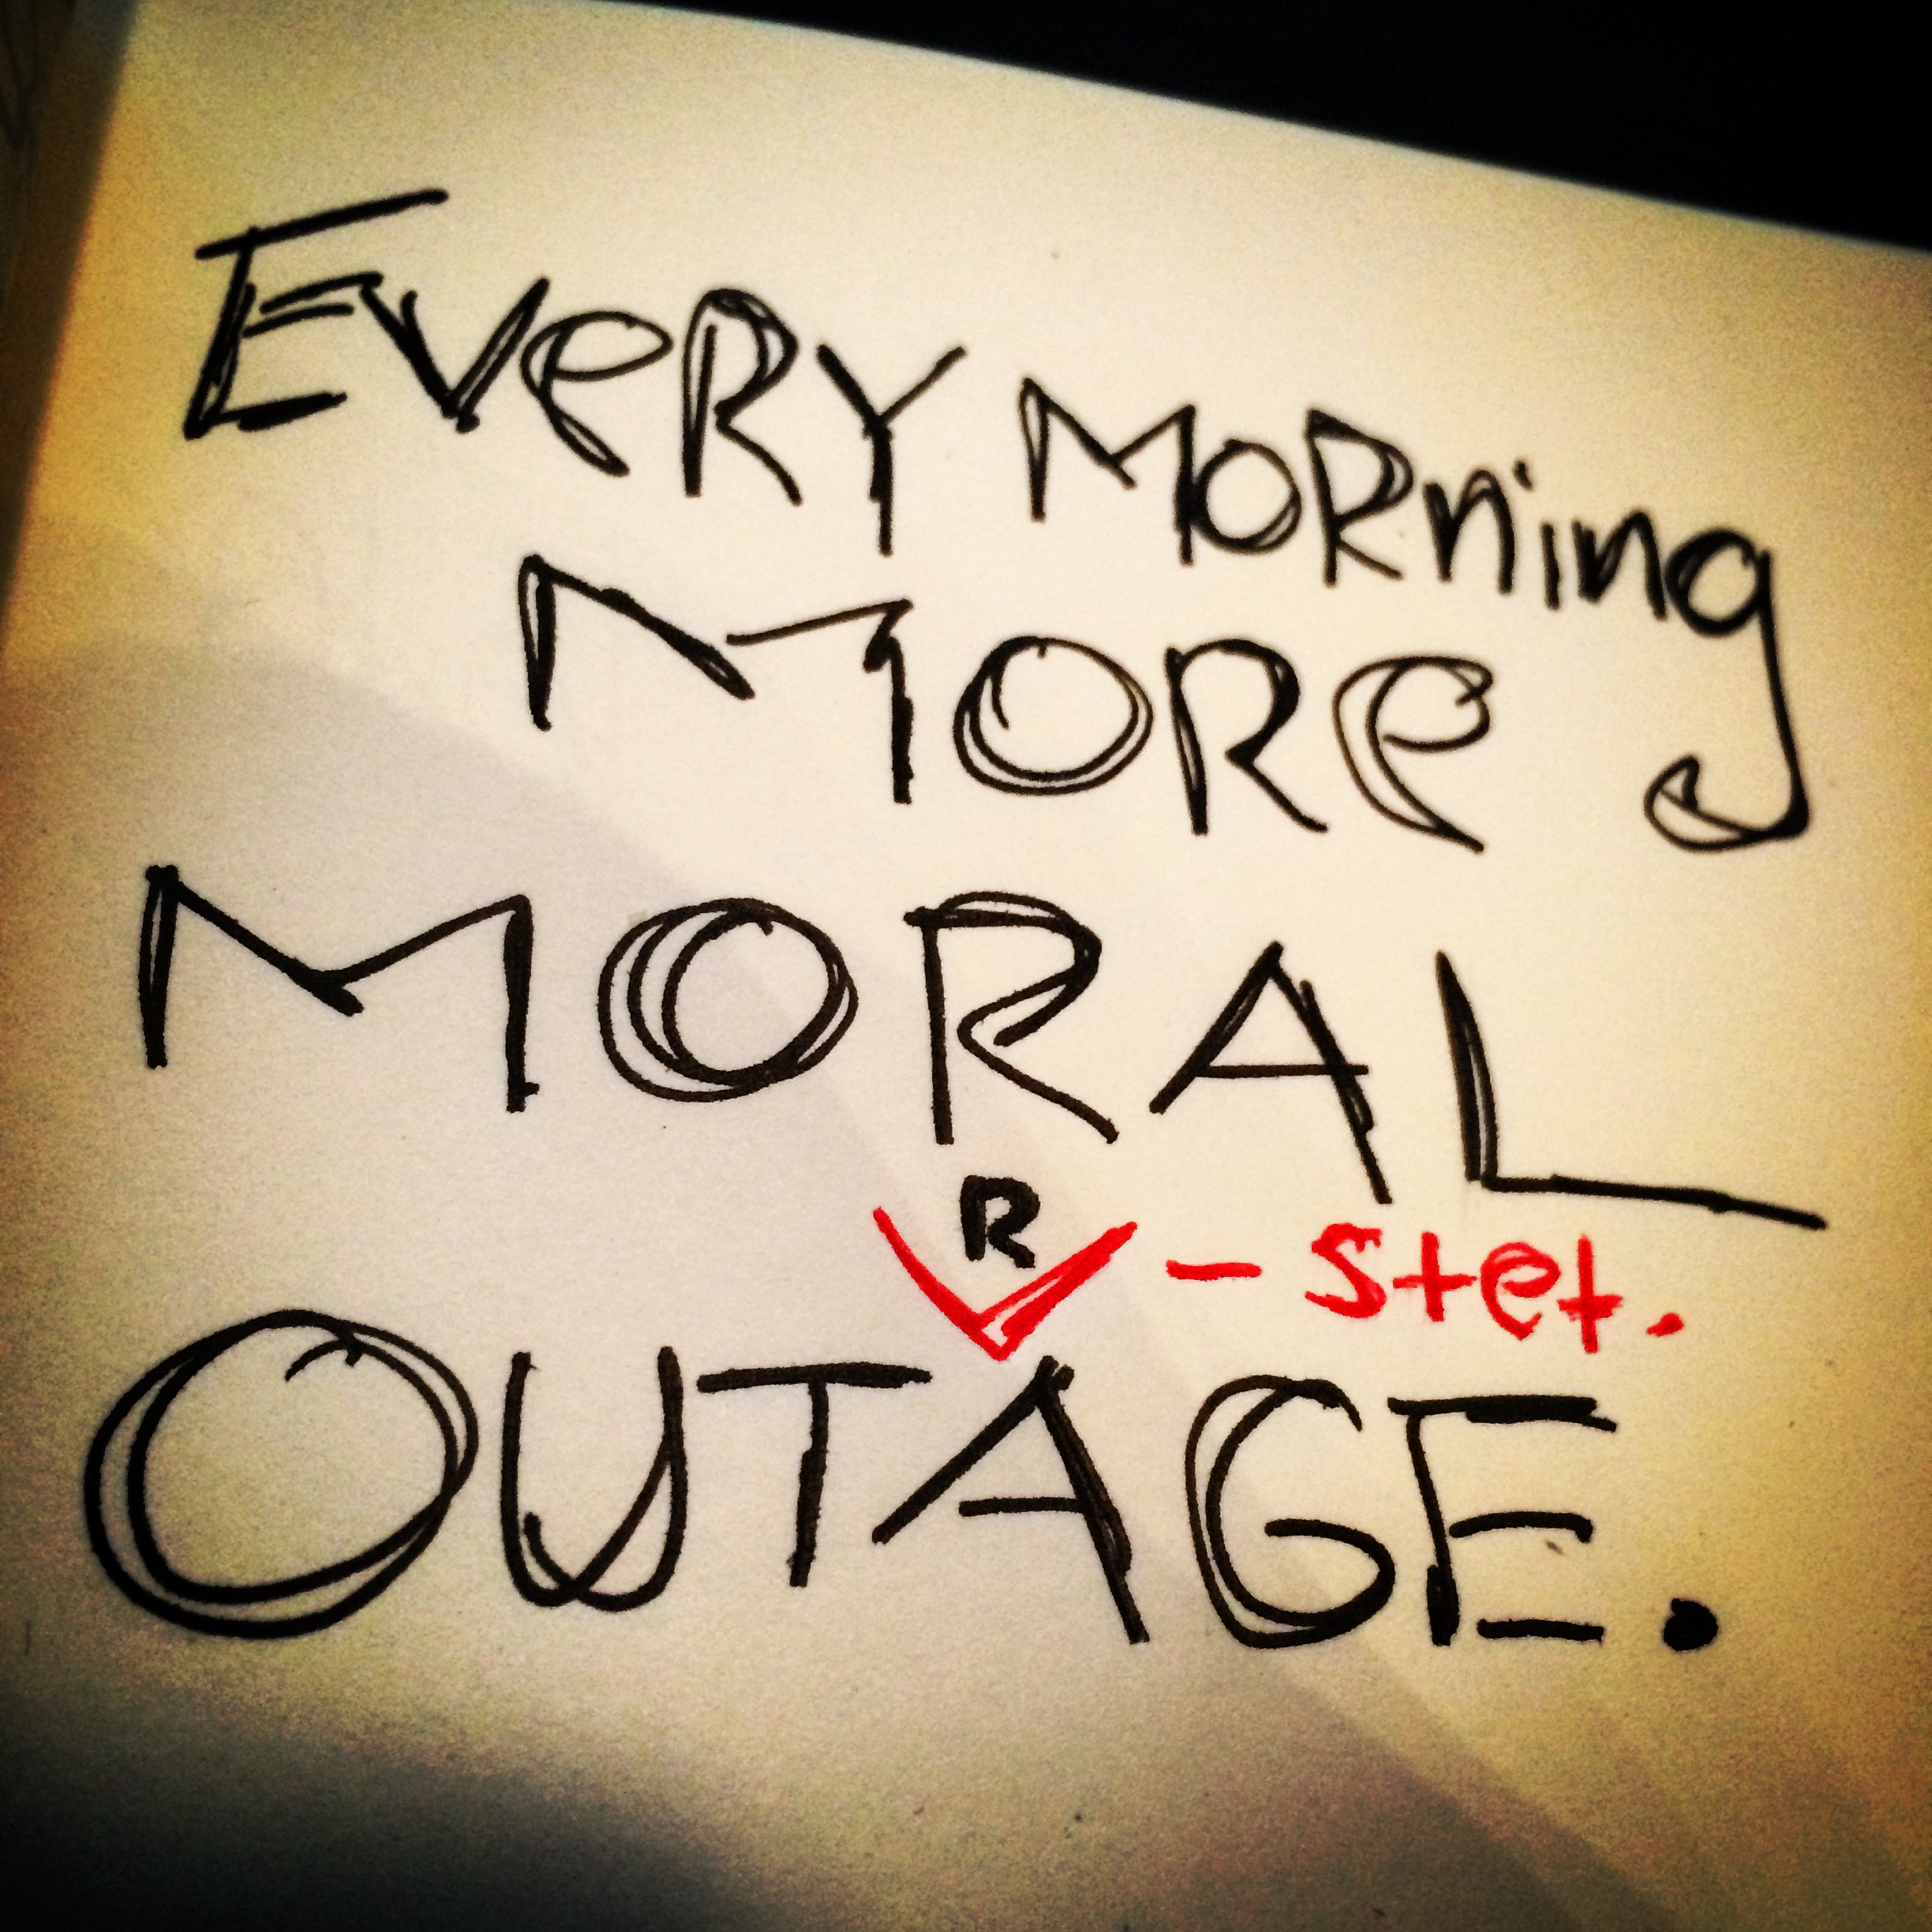 EVeRY MORning
MORe
MORAL
R - stet.
OUTAGE.